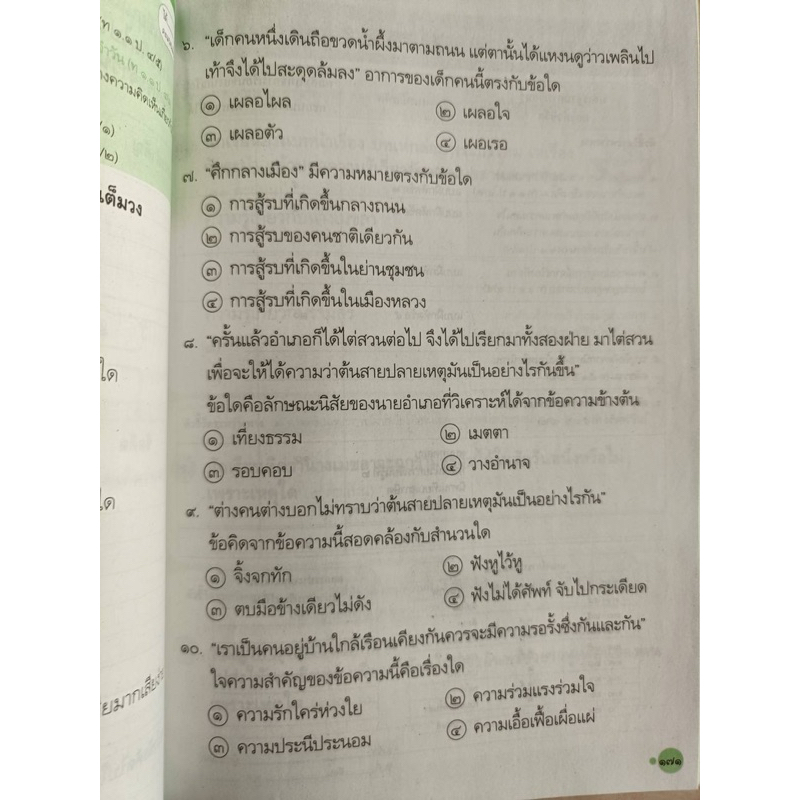 ท ๑.๑ ป. ๔/๕)
๖. “เด็กคนหนึ่งเดินถือขวดน้ำผึ้งมาตามถนน แต่ตานั้นได้แหงนดูว่าวเพลินไป
เท้าจึงได้ไปสะดุดล้มลง” อาการของเด็กคนนี้ตรงกับข้อใด
๑ เผลอไผล
๒ เผลอใจ
๓ เผลอตัว
๔ เผอเรอ
๗. “ศึกกลางเมือง” มีความหมายตรงกับข้อใด
๑ การสู้รบที่เกิดขึ้นกลางถนน
๒ การสู้รบของคนชาติเดียวกัน
๓ การสู้รบที่เกิดขึ้นในย่านชุมชน
๔ การสู้รบที่เกิดขึ้นในเมืองหลวง
๘. “ครั้นแล้วอำเภอก็ได้ไต่สวนต่อไป จึงได้ไปเรียกมาทั้งสองฝ่าย มาไต่สวน
เพื่อจะให้ได้ความว่าต้นสายปลายเหตุมันเป็นอย่างไรกันขึ้น”
ข้อใดคือลักษณะนิสัยของนายอำเภอที่วิเคราะห์ได้จากข้อความข้างต้น
๑ เที่ยงธรรม
๒ เมตตา
๓ รอบคอบ
๔ วางอำนาจ
๙. “ต่างคนต่างบอกไม่ทราบว่าต้นสายปลายเหตุมันเป็นอย่างไรกัน”
ข้อคิดจากข้อความนี้สอดคล้องกับสำนวนใด
๑ จิ้งจกทัก
๒ ฟังหูไว้หู
๓ ตบมือข้างเดียวไม่ดัง
๔ ฟังไม่ได้ศัพท์ จับไปกระเดียด
๑๐. “เราเป็นคนอยู่บ้านใกล้เรือนเคียงกันควรจะมีความรอรั้งซึ่งกันและกัน”
ใจความสำคัญของข้อความนี้คือเรื่องใด
๑ ความรักใคร่ห่วงใย
๒ ความร่วมแรงร่วมใจ
๓ ความประนีประนอม
๔ ความเอื้อเฟื้อเผื่อแผ่
๑๗๑
/๑)
/๒)
เต็มวง
ใด
ใด